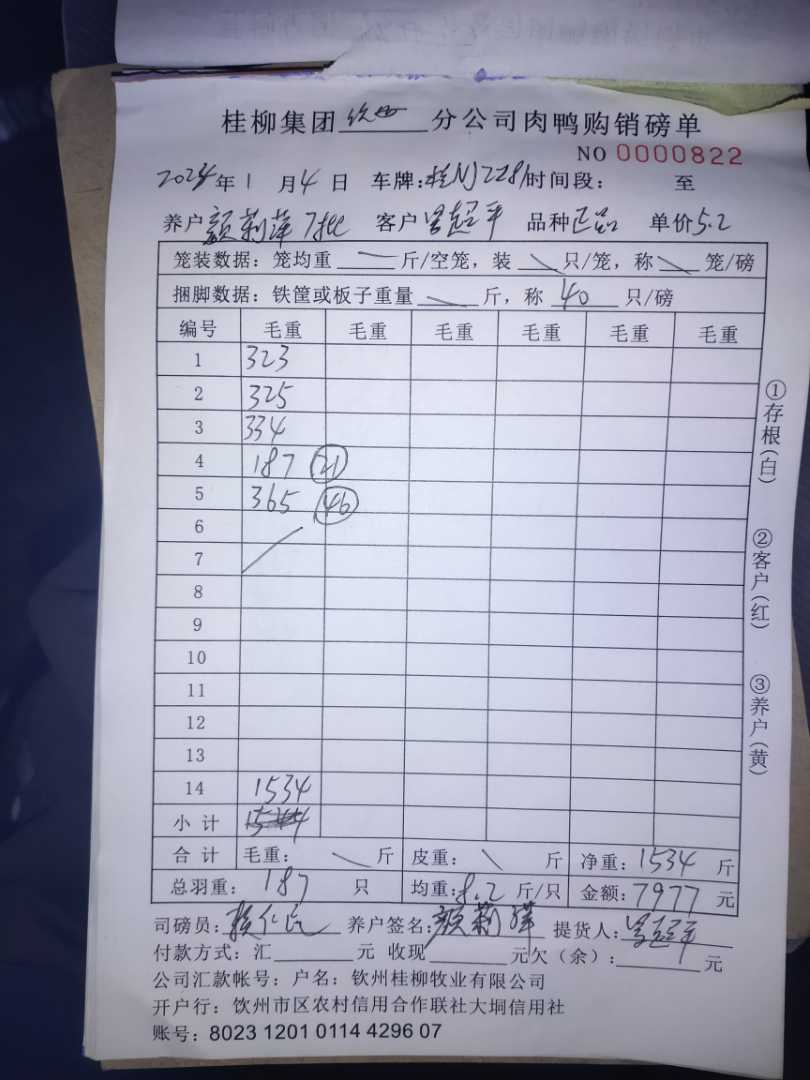 桂柳集团钦西分公司肉鸭购销磅单
NO 0000822
2024年1月4日 车牌:桂NJ2281时间段: 至
养户颜莉萍7批 客户 超平 品种正品 单价5.2
笼装数据: 笼均重 斤/空笼, 装 只/笼, 称 笼/磅
捆脚数据: 铁筐或板子重量 斤, 称 40 只/磅
编号 毛重 毛重 毛重 毛重 毛重 毛重
1 323
2 325
3 334
4 187 21
5 365 46
6
7
8
9
10
11
12
13
14 1534
小计
合计 毛重: 斤 皮重: 斤 净重: 1534 斤
总羽重: 187 只 均重: 8.2 斤/只 金额: 7977 元
司磅员: 养户签名: 颜莉萍 提货人: 超平
付款方式: 汇 元 收现 元欠(余): 元
公司汇款帐号: 户名: 钦州桂柳牧业有限公司
开户行: 饮州市区农村信用合作联社大垌信用社
账号: 8023 1201 0114 4296 07
①存根(白)
②客户(红)
③养户(黄)